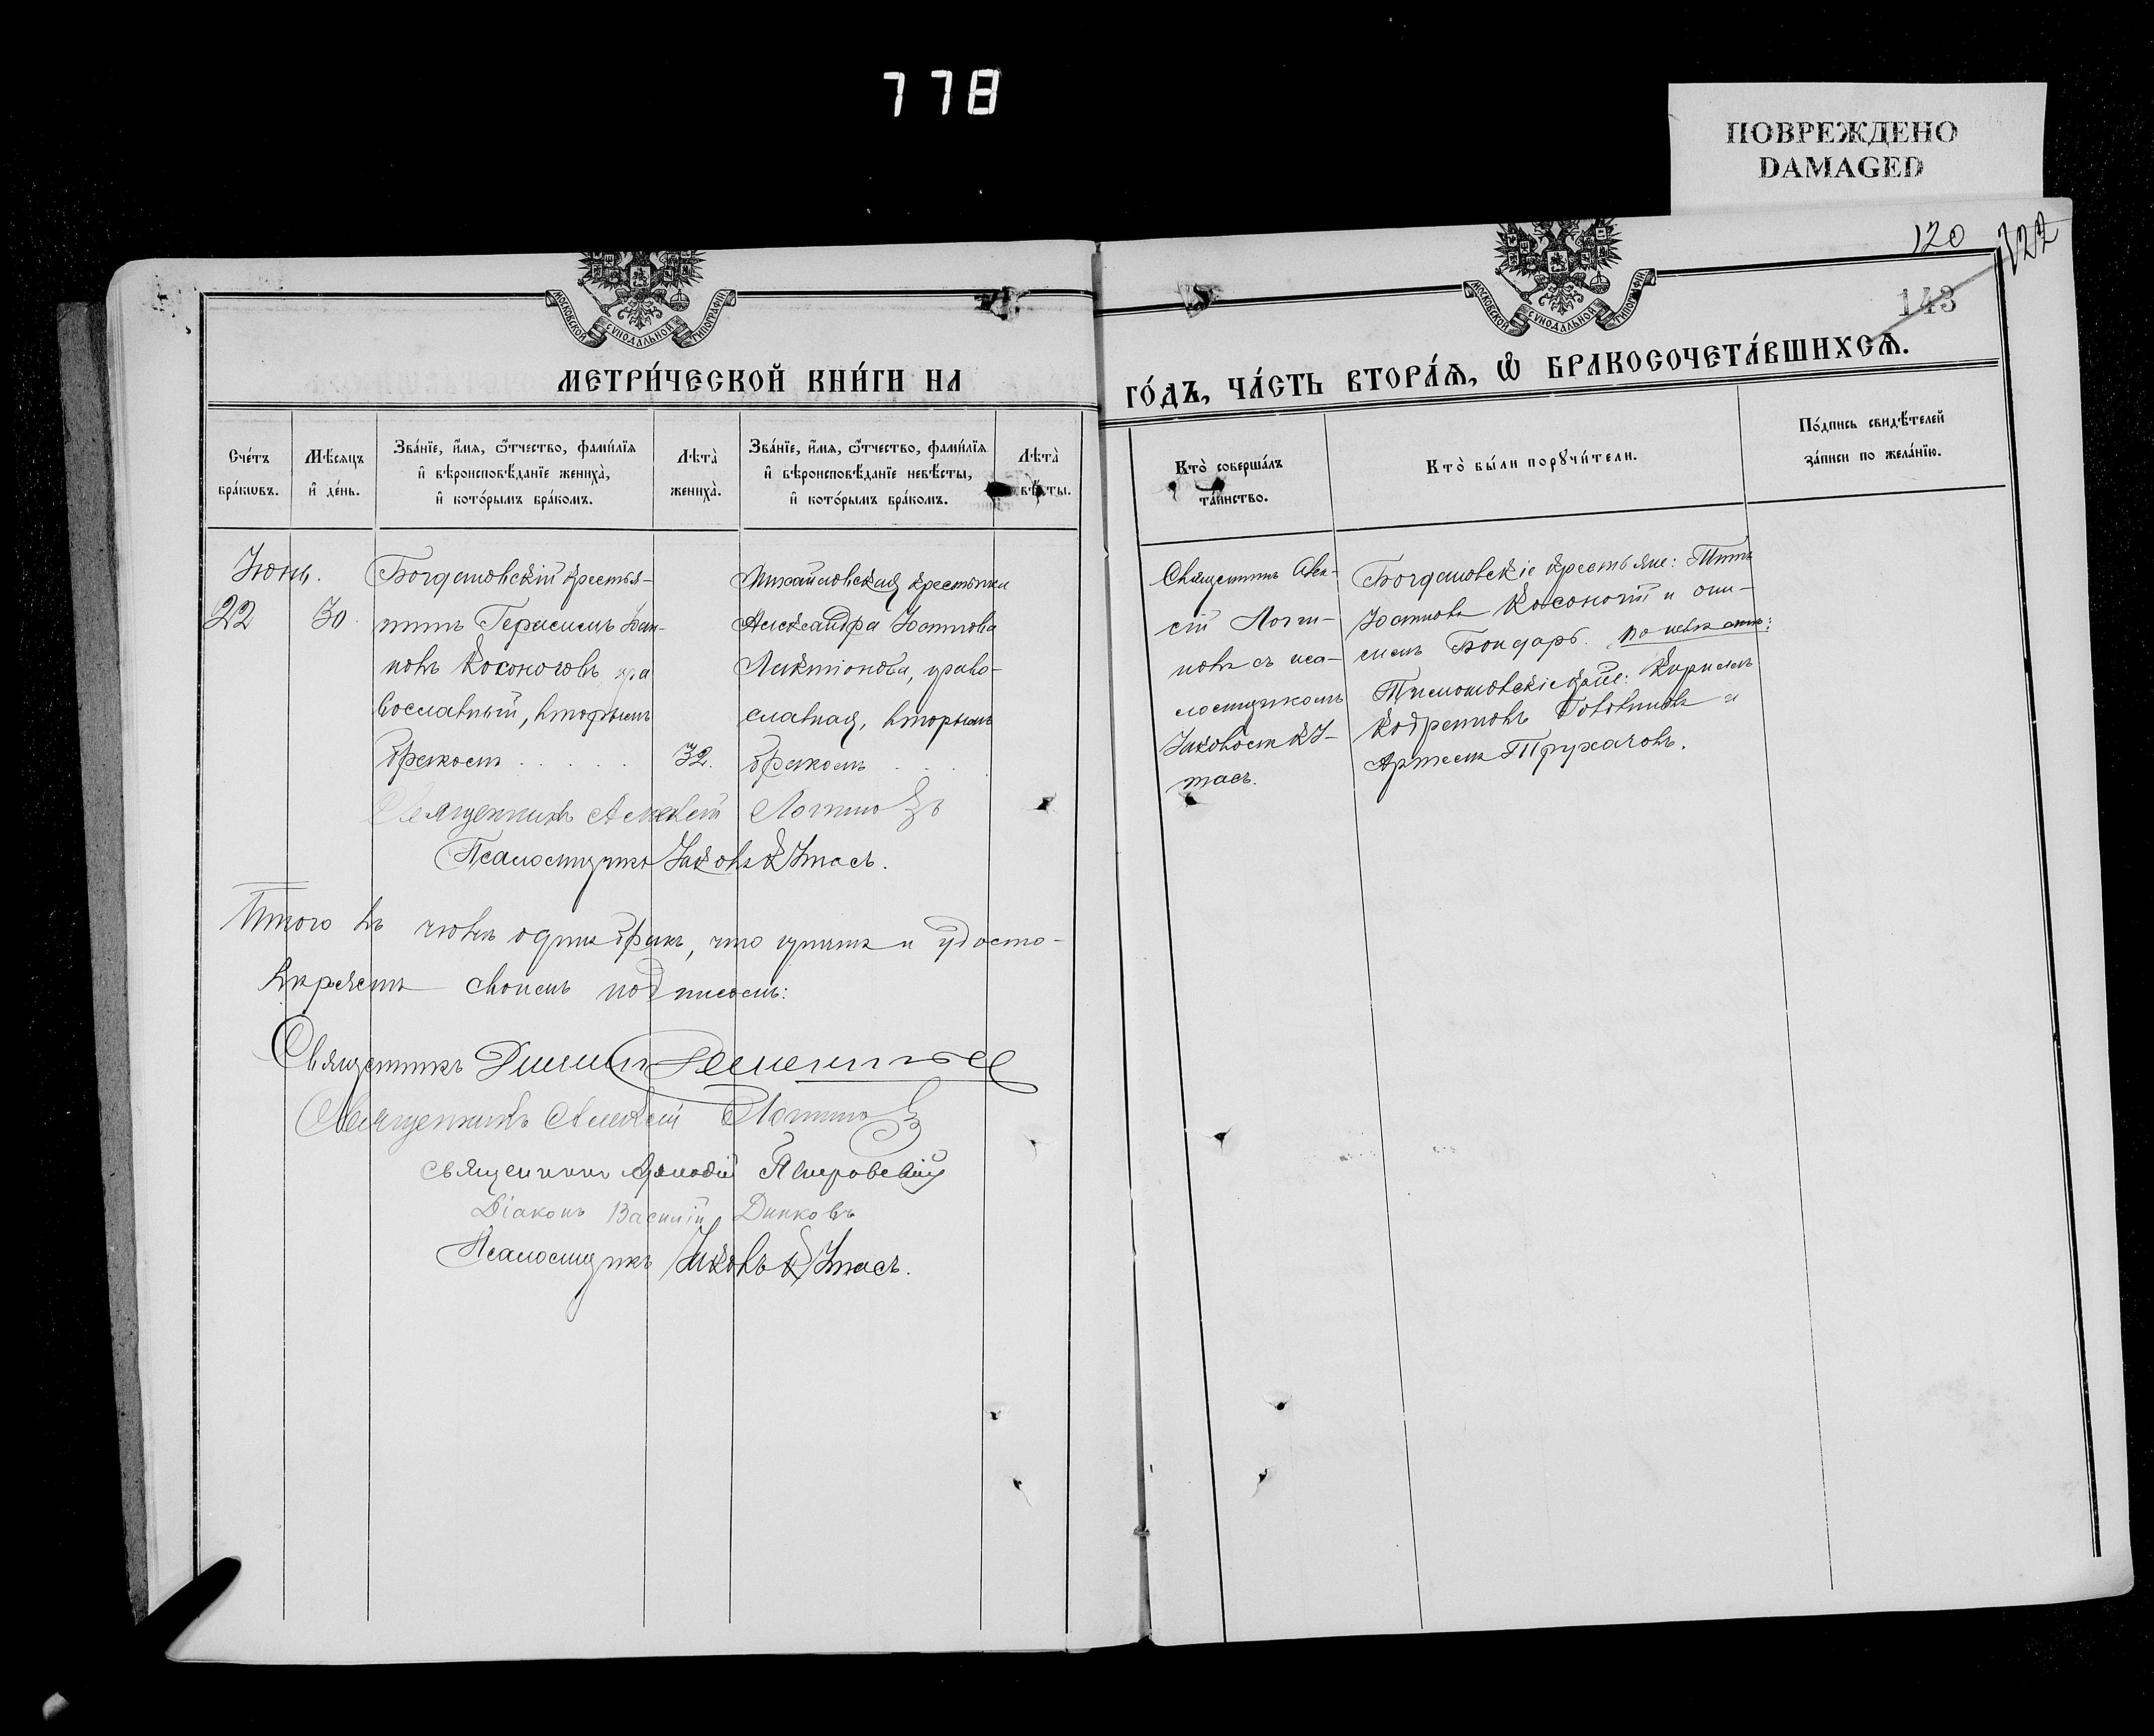 778
ПОВРЕЖДЕНО
DAMAGED
120 122
143
МОСКОВСКОЙ СУНОДАЛЬНОЙ ТИПОГРАФІИ
МОСКОВСКОЙ СУНОДАЛЬНОЙ ТИПОГРАФІИ
МЕТРИ́ЧЕСКОЙ КНИ́ГИ НА
ГО́ДЪ, ЧА́СТЬ ВТОРА́Ѧ, Ѽ БРАКОСОЧЕТА́ВШИХСѦ.
Сче́тъ
бра́кѡвъ.
Мѣ́сѧцъ
и҆ де́нь.
Зва́нїе, и҆́мѧ, ѻ҆́тчество, фами́лїѧ
и҆ вѣроисповѣ́данїе жениха̀,
и҆ кото́рымъ бра́комъ.
Лѣта̀
жениха̀.
Зва́нїе, и҆́мѧ, ѻ҆́тчество, фами́лїѧ
и҆ вѣроисповѣ́данїе невѣ́сты,
и҆ кото́рымъ бра́комъ.
Лѣта̀
вѣ́сты.
Кто̀ соверша́лъ
та́инство.
Кто̀ бы́ли порꙋчи́тели.
По́дпись свидѣ́телей
за́писи по жела́нїю.
Іюнь.
22
30.
Богдановскій крестья-
нинъ Герасимъ Іоан-
новъ Косоноговъ, пра
вославный, вторымъ
бракомъ
32.
Михайловская крестьянка
Александра Іоаннова
Лактіонова, право-
славная, вторымъ
бракомъ
Священникъ Алек-
сій Логи-
новъ съ пса-
ломщикомъ
Іаковомъ
Богдановскіе крестьяне: Титъ
Іоанновъ Косоногій и
Бондарь. По невѣстѣ:
Кириллъ
и
Артемъ Трухачовъ.
Священникъ Алексій Логиновъ
Псаломщикъ Іаковъ
Итого въ іюнѣ одинъ бракъ, что причтъ и удосто-
вѣряетъ своимъ подписомъ:
Священникъ
Священникъ Алексій Логиновъ
священникъ
Діаконъ Василій Динковъ
Псаломщикъ Іаковъ